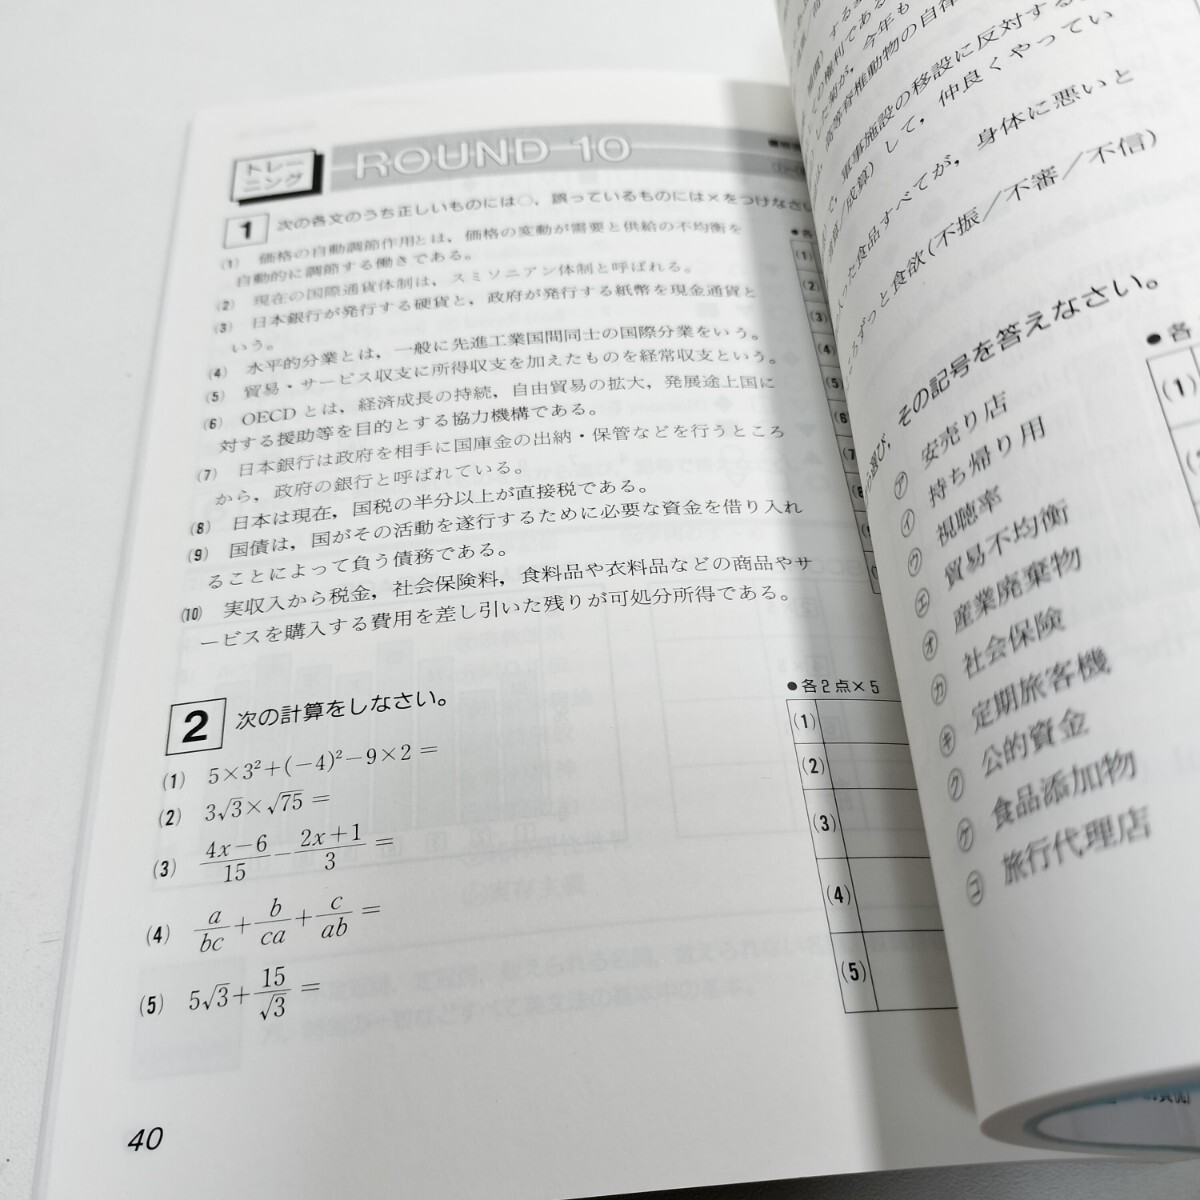 トレーニング
ROUND 10
1 次の各文のうち正しいものには○，誤っているものには×をつけなさい
(1) 価格の自動調節作用とは，価格の変動が需要と供給の不均衡を
自動的に調節する働きである。
(2) 現在の国際通貨体制は，スミソニアン体制と呼ばれる。
(3) 日本銀行が発行する硬貨と，政府が発行する紙幣を現金通貨と
いう。
(4) 水平的分業とは，一般に先進工業国間同士の国際分業をいう。
(5) 貿易・サービス収支に所得収支を加えたものを経常収支という。
(6) OECDとは，経済成長の持続，自由貿易の拡大，発展途上国に
対する援助等を目的とする協力機構である。
(7) 日本銀行は政府を相手に国庫金の出納・保管などを行うところ
から，政府の銀行と呼ばれている。
(8) 日本は現在，国税の半分以上が直接税である。
(9) 国債は，国がその活動を遂行するために必要な資金を借り入れ
ることによって負う債務である。
(10) 実収入から税金，社会保険料，食料品や衣料品などの商品やサ
ービスを購入する費用を差し引いた残りが可処分所得である。
●各
(1)
(2)
(3)
(4)
(5)
(6)
(7)
(8)
2 次の計算をしなさい。
(1) 5×3²+(−4)²−9×2=
(2) 3√3×√75=
(3) (4x−6)/15−(2x+1)/3=
(4) a/bc+b/ca+c/ab=
(5) 5√3+15/√3=
●各2点×5
(1)
(2)
(3)
(4)
(5)
40
の権利である
した菊が，今年も
高等脊椎動物の自律
，軍事施設の移設に反対する
算/成算）して，仲良くやってい
った食品すべてが，身体に悪いと
ころずっと食欲(不振／不審／不信)
選び，その記号を答えなさい。
㋐ 安売り店
㋑ 持ち帰り用
㋒ 視聴率
㋓ 貿易不均衡
㋔ 産業廃棄物
㋕ 社会保険
㋖ 定期旅客機
㋗ 公的資金
㋘ 食品添加物
㋙ 旅行代理店
●各
(1)